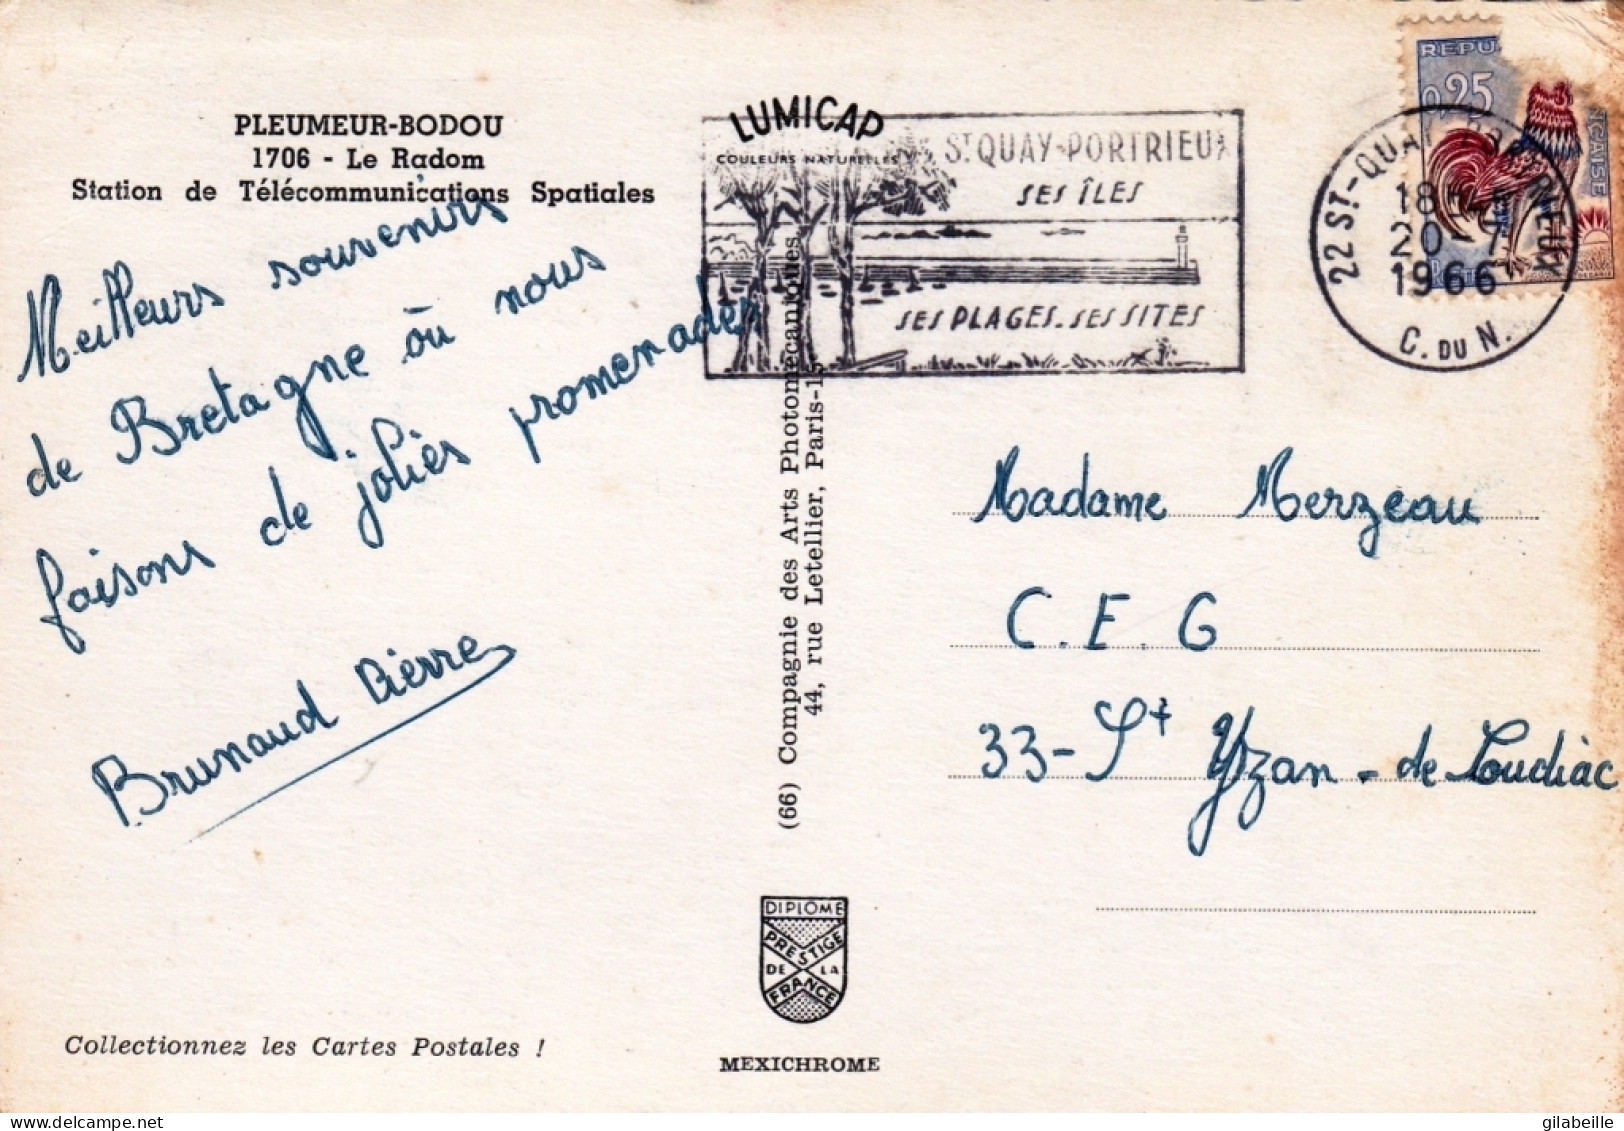 PLEUMEUR-BODOU
1706 - Le Radom
Station de Télécommunications Spatiales
Meilleurs souvenirs
de Bretagne où nous
faisons de jolies promenades
Brunaud Pierre
Collectionnez les Cartes Postales !
LUMICAP
COULEURS NATURELLES
(66) Compagnie des Arts Photomécaniques
44, rue Letellier, Paris-15
DIPLOME
PRESTIGE
DE LA
FRANCE
MEXICHROME
St QUAY-PORTRIEUX
SES ÎLES
SES PLAGES. SES SITES
REPU
0,25
NÇAISE
22 ST-QUAY PORTRIEUX
18H
20-7
1966
C. DU N.
Madame Merzeau
C. E. G
33- St Yzan - de Soudiac
gilabeille